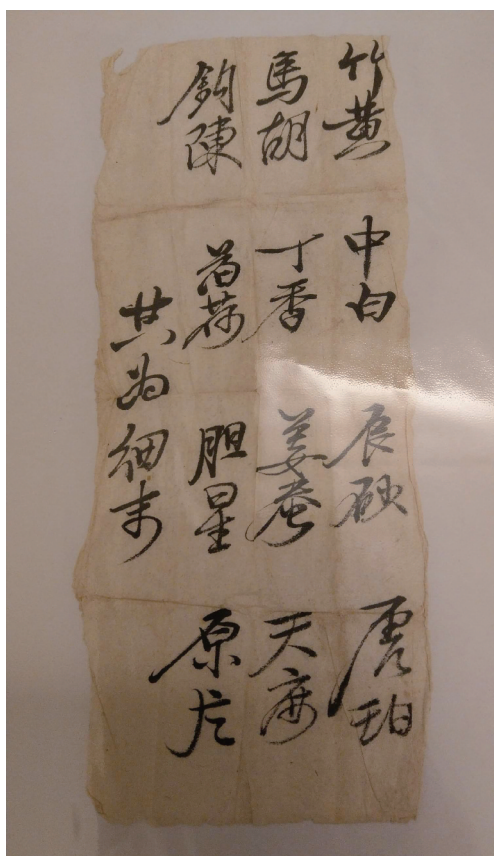 竹黄 中白 辰砂 虎珀
馬胡 丁香 姜蚕 天麻
鈎陳 苩荷 胆星 原片
共为细末